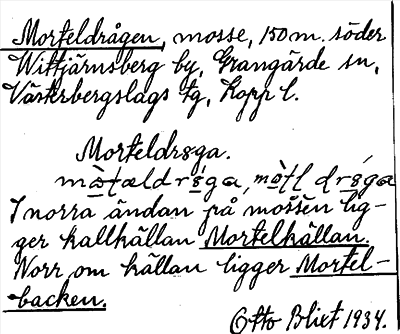 Morteldrågen, mosse, 150 m. söder
Wittjärnsberg by, Grangärde sn,
Västerbergslags tg, Kopp l.
Morteldrɞga.
I norra ändan på mossen lig-
ger kallkällan Mortelkällan.
Norr om källan ligger Mortel-
backen.
Otto Blixt 1934.